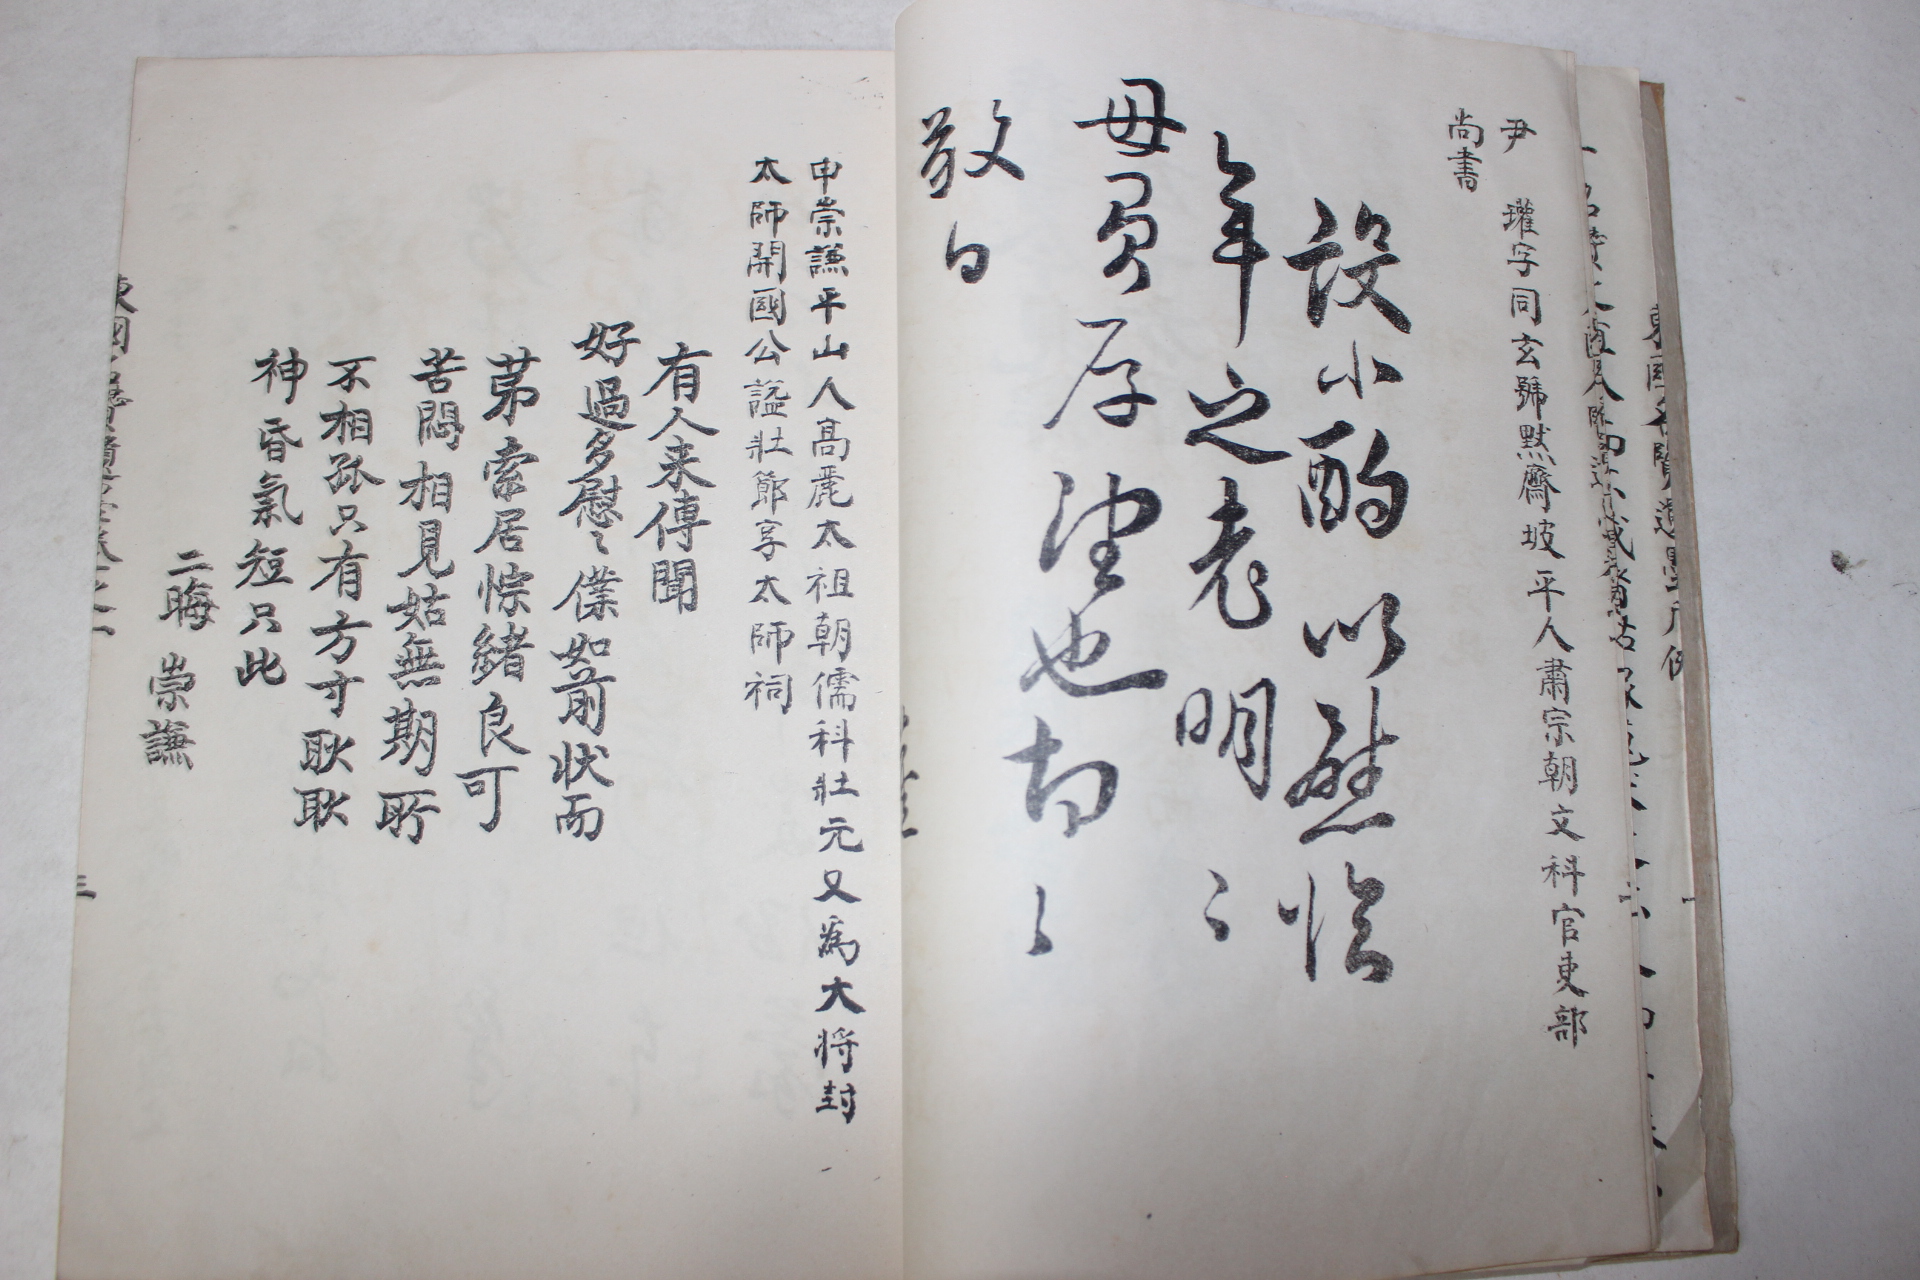 東國名賢遺墨凡例
尹 瓘字同玄號默齋坡平人肅宗朝文科官吏部
尚書
設小酌以慰惔
年之老明〻
毋負厚望也切〻
敬白
申崇謙平山人高麗太祖朝儒科壯元又爲大將封
太師開國公謚壯節享太師祠
有人来傳聞
好過多慰〻僕如前状而
苐索居悰緒良可
苦悶相見姑無期所
不相孤只有方寸耿耿
神昏氣短只此
二晦 崇謙
三